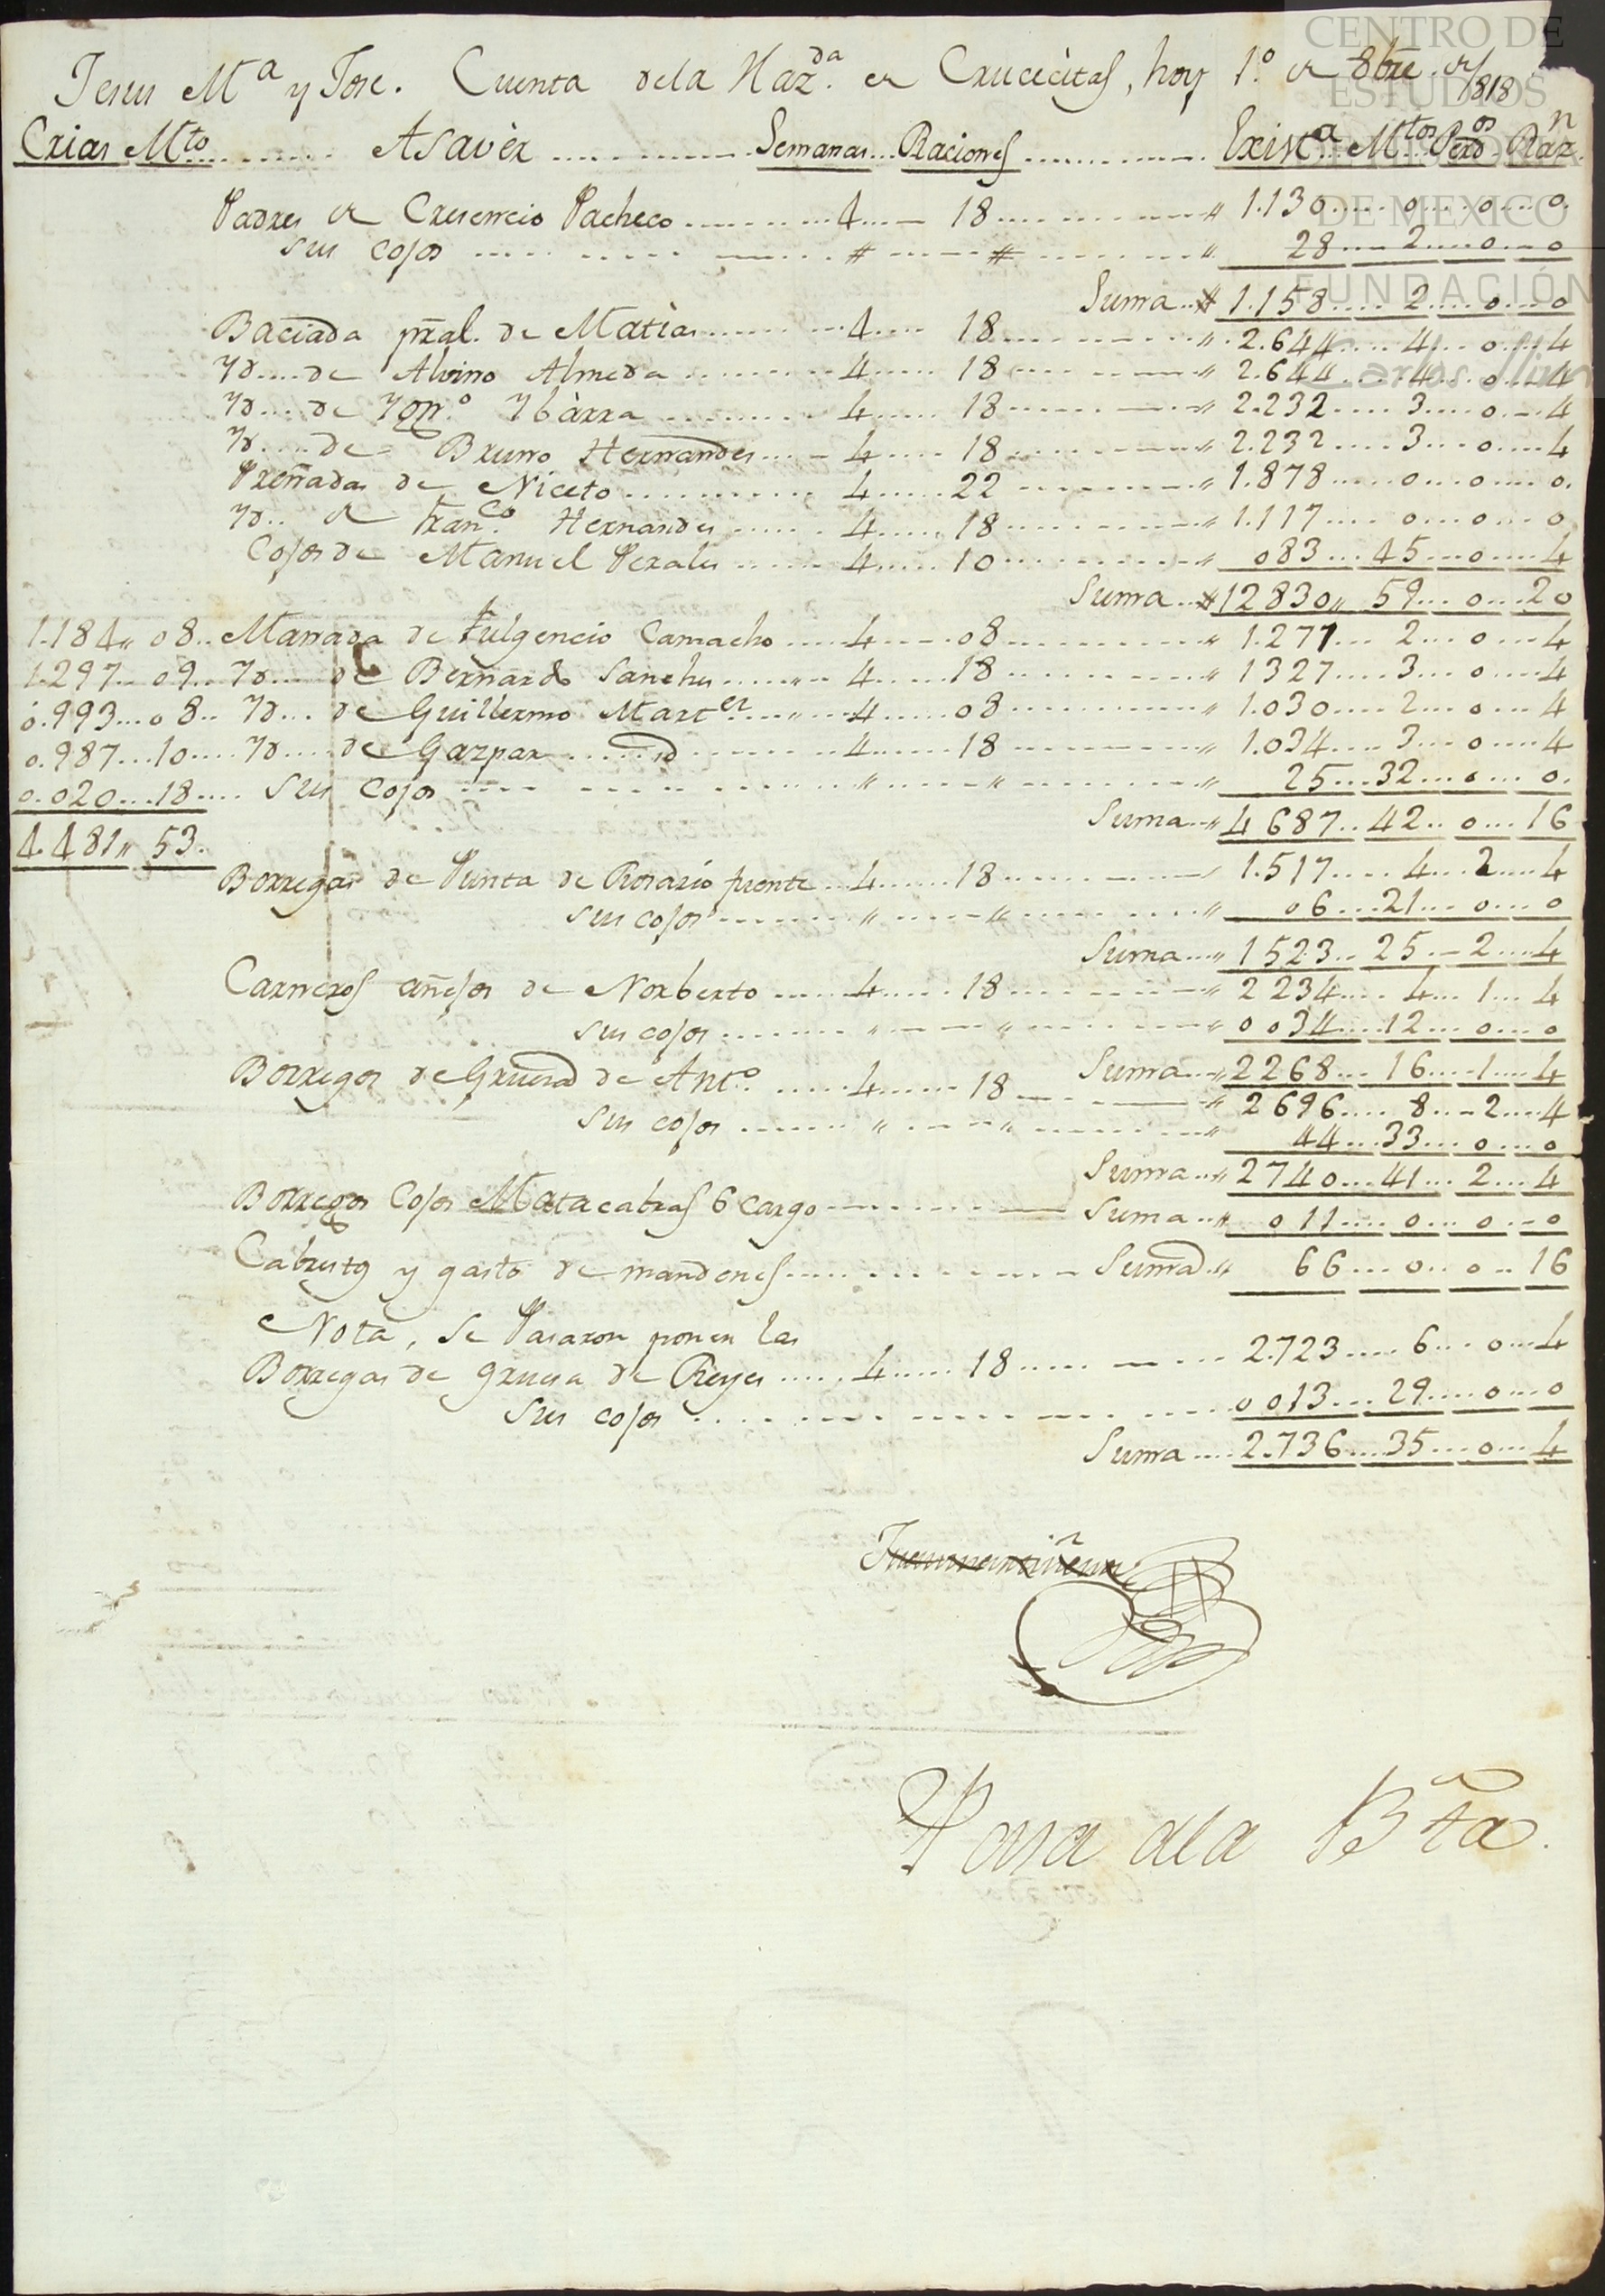 CENTRO DE
ESTUDIOS
DE MEXICO
FUNDACIÓN
Carlos Slim
Jesus Mª y Jose. Cuenta dela Hazda. de Crucècitas, hoy 1.º de 8bre. de 1818
Crias Mto. ........ Asavèr ............ Semanas... Raciones ............ Existª. Mtos. Perdos. Razn.
Padres de Cresencio Pacheco ......... 4 ..... 18 ............ " 1.130 ..... 0 ..... 0 ..... 0.
sus cojos ............ # ..... # ............ " 28 .... 2 .... 0 ... 0
Suma .. # 1.158 ..... 2 .... 0 ... 0
Baciada pral. de Matias ......... 4 .... 18 ............ " 2.644 ..... 4 ... 0 ... 4
Yd .... de Alvino Almeda ......... 4 ..... 18 ............ " 2.644 .... 4 ... 0 ... 4
Yd .... de Ygnº. Ybàrra ......... 4 ..... 18 ............ " 2.232 ..... 3 .... 0 ... 4
Yd ..... de Bruno Hernandes .... 4 ..... 18 ............ " 2.232 ..... 3 ... 0 .... 4
Preñadas de Niceto ............ 4 ...... 22 ............ " 1.878 ..... 0 ... 0 .... 0.
Yd .. de Franco. Hernandes ...... 4 ...... 18 ............ " 1.117 .... 0 ... 0 ... 0
Cojos de Manuel Perales ...... 4 ..... 10 ............ " 083 ... 45 ... 0 .... 4
Suma ... # 12830 " 59 ... 0 ... 20
1.184 " 08 .. Manada de Fulgencio Camacho ..... 4 ..... 08 ............ " 1.271 .... 2 ... 0 ... 4
1.297 .. 09 .. Yd .... de Bernardo Sanches ...... 4 ..... 18 ............ " 1327 .... 3 ... 0 .... 4
0.993 ... 08 .. Yd .... de Guillermo Martez ...... 4 ...... 08 ............ " 1.030 .... 2 ... 0 ... 4
0.987 ... 10 .... Yd .... de Gazpar ...... id ......... 4 ...... 18 ............ " 1.034 .... 3 ... 0 .... 4
0.020 ... 18 .... sus cojos ............ " ...... " ............ " 25 ... 32 ... 0 ... 0.
Suma .. " 4687 .. 42 .. 0 ... 16
4.481 " 53.
Borregas de Punta de Rosario puente .. 4 ...... 18 ............ 1.517 .... 4 ... 2 .... 4
sus cojos ......... " ..... " ............ " 06 ... 21 ... 0 .... 0
Suma .... " 1523 .. 25 .. 2 .... 4
Carneros añejos de Norberto ...... 4 ..... 18 ............ " 2234 .... 4 ... 1 ... 4
sus cojos ......... " ...... " ............ " 0034 .... 12 ... 0 ... 0
Suma ... " 2268 ... 16 .... 1 .... 4
Borregos de Gruesa de Antº. ...... 4 ...... 18 ............ " 2696 .... 8 ... 2 .... 4
sus cojos ......... " ..... " ............ " 44 ... 33 ... 0 ... 0
Suma ... " 2740 ... 41 ... 2 ... 4
Borregos Cojos Matacabras 6 cargo ............ Suma ... " 011 .... 0 ... 0 ... 0
Cabresto y gasto de mandones ............ Suma .. " 66 ... 0 .. 0 .. 16
Nota, se Pasaron poner las
Borregas de gruesa de Reyes ...... 4 ..... 18 ............ 2.723 .... 6 ... 0 ... 4
Sus cojos ............ 0013 ... 29 .... 0 ... 0
Suma .... 2.736 ... 35 ... 0 ... 4
Pasa ala Bta.